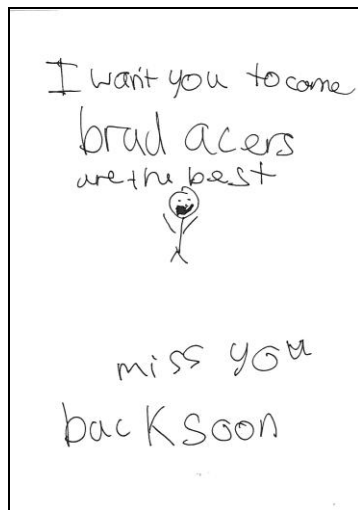 I want you to come
brad acers
are the best
miss you
back soon